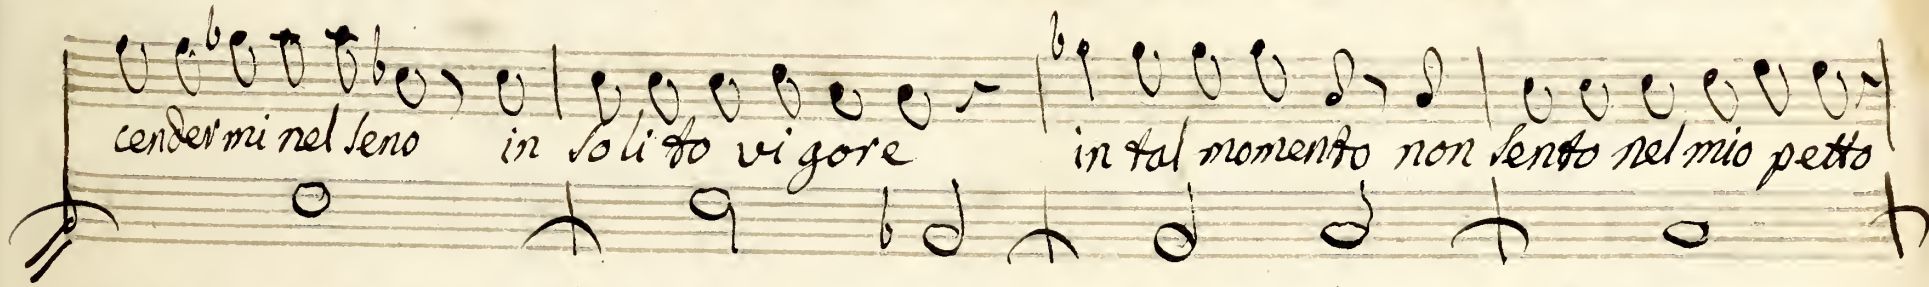 cendermi nel seno in solito vigore in tal momento non sento nel mio petto